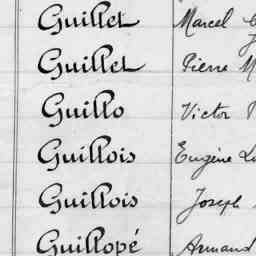 Guillet Marcel
Guillet Pierre
Guillo Victor
Guillois Eugène
Guillois Joseph
Guillopé Armand